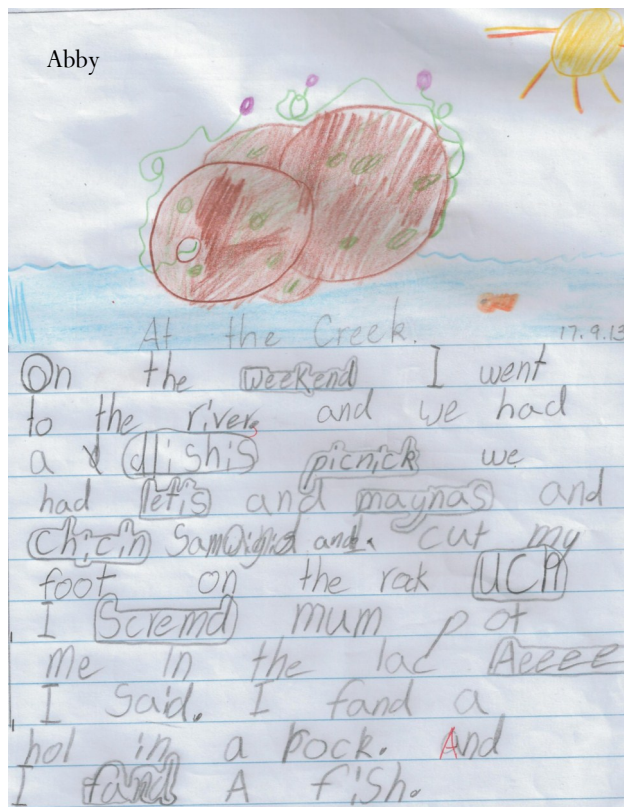 Abby
At the Creek.
17.9.13
On the weekend I went
to the river. and we had
a dlishis picnick we
had letis and maynas and
chicin Samwigis and I. cut my
foot on the rock UCH
I Scremd mum pot
me in the lac Aeeee
I Said. I fand a
hol in a rock. And
I fand A fish.